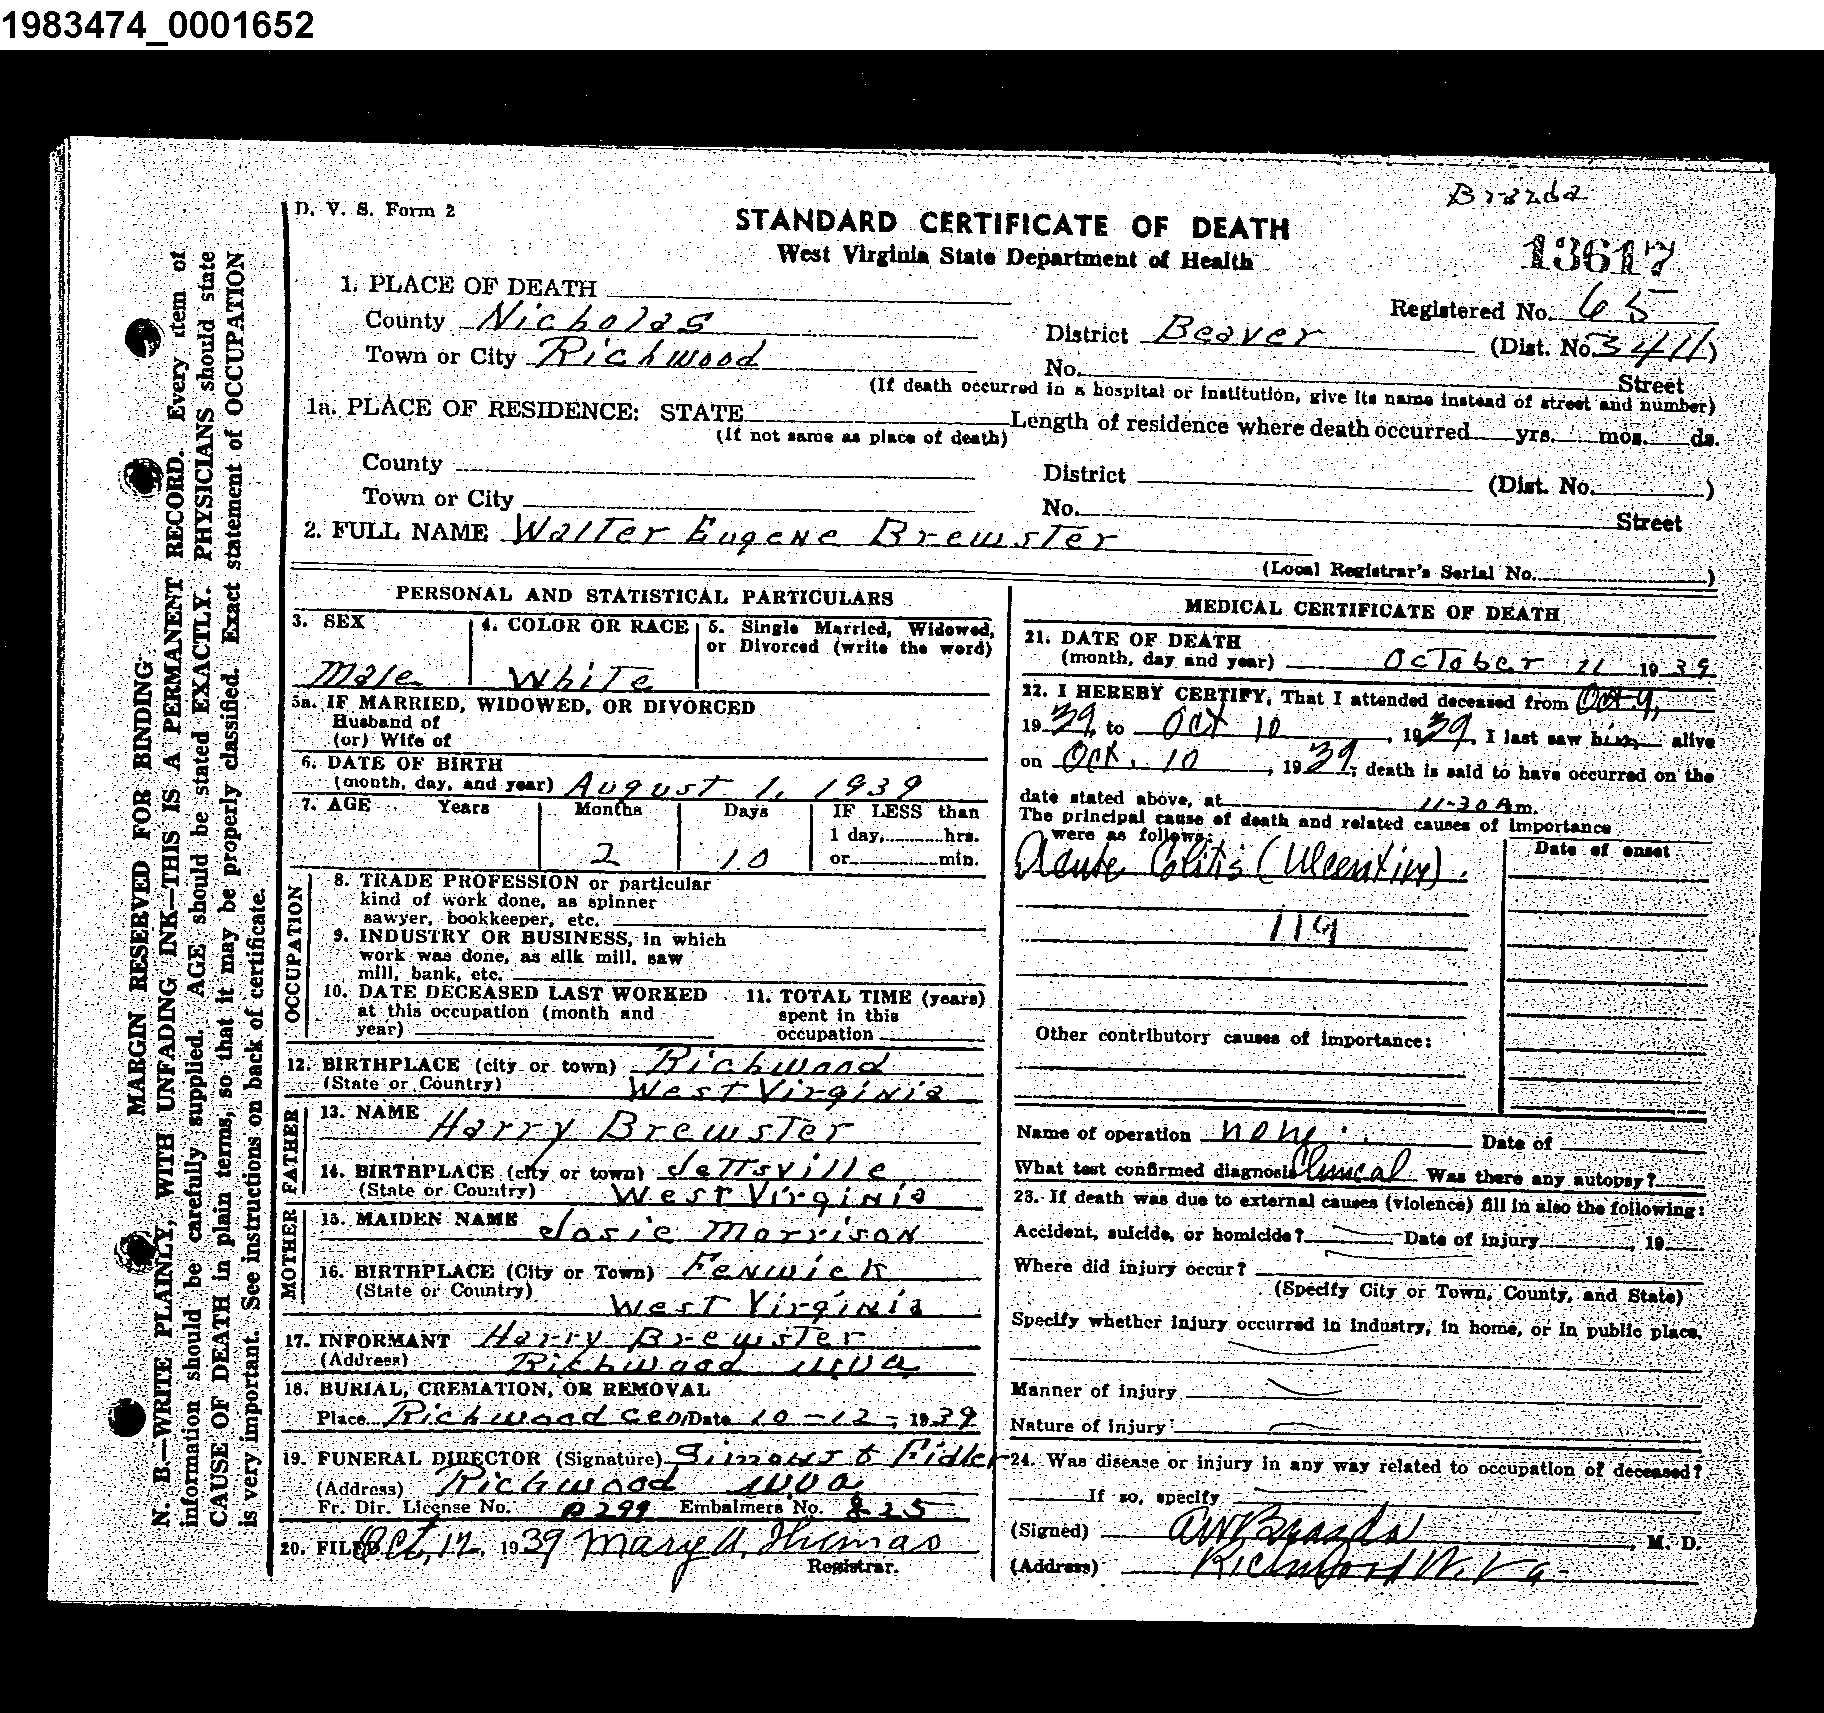 1983474_0001652
Branda
D. V. S. Form 2
STANDARD CERTIFICATE OF DEATH
West Virginia State Department of Health
13617
1. PLACE OF DEATH
Registered No. 65
County Nicholas
District Beaver (Dist. No. 3411)
Town or City Richwood
No. Street
(If death occurred in a hospital or institution, give its name instead of street and number)
1a. PLACE OF RESIDENCE: STATE
Length of residence where death occurred yrs. mos. ds.
(If not same as place of death)
County
District (Dist. No. )
Town or City
No. Street
2. FULL NAME Walter Eugene Brewster
(Local Registrar's Serial No. )
PERSONAL AND STATISTICAL PARTICULARS
3. SEX
Male
4. COLOR OR RACE
White
5. Single Married, Widowed,
or Divorced (write the word)
5a. IF MARRIED, WIDOWED, OR DIVORCED
Husband of
(or) Wife of
6. DATE OF BIRTH
(month, day, and year) August 1, 1939
7. AGE Years Months Days IF LESS than
1 day, hrs.
2 10 or min.
OCCUPATION
8. TRADE PROFESSION or particular
kind of work done, as spinner
sawyer, bookkeeper, etc.
9. INDUSTRY OR BUSINESS, in which
work was done, as silk mill, saw
mill, bank, etc.
10. DATE DECEASED LAST WORKED
at this occupation (month and
year)
11. TOTAL TIME (years)
spent in this
occupation
12. BIRTHPLACE (city or town) Richwood
(State or Country) West Virginia
FATHER
13. NAME Harry Brewster
14. BIRTHPLACE (city or town) Jettsville
(State or Country) West Virginia
MOTHER
15. MAIDEN NAME Josie Morrison
16. BIRTHPLACE (City or Town) Fenwick
(State or Country) West Virginia
17. INFORMANT Harry Brewster
(Address) Richwood W Va
18. BURIAL, CREMATION, OR REMOVAL
Place Richwood Cem Date 10-12-, 1939
19. FUNERAL DIRECTOR (Signature) Simons & Fidler
(Address) Richwood W Va
Fr. Dir. License No. 299 Embalmers No. 825
20. FILED Oct, 12, 1939 Mary A. Thomas
Registrar.
MEDICAL CERTIFICATE OF DEATH
21. DATE OF DEATH
(month, day and year) October 11 1939
22. I HEREBY CERTIFY, That I attended deceased from Oct 9,
1939, to Oct 10, 1939, I last saw him alive
on Oct. 10, 1939, death is said to have occurred on the
date stated above, at 11-30 Am.
The principal cause of death and related causes of importance
were as follows:
Date of onset
Acute Colitis (Ulcerative).
119
Other contributory causes of importance:
Name of operation none Date of
What test confirmed diagnosis Clinical Was there any autopsy?
23. If death was due to external causes (violence) fill in also the following:
Accident, suicide, or homicide? Date of injury , 19
Where did injury occur?
(Specify City or Town, County, and State)
Specify whether injury occurred in industry, in home, or in public place.
Manner of injury
Nature of injury
24. Was disease or injury in any way related to occupation of deceased?
If so, specify
(Signed) Branda, M. D.
(Address) Richwood W. Va
MARGIN RESERVED FOR BINDING
N. B.—WRITE PLAINLY, WITH UNFADING INK—THIS IS A PERMANENT RECORD. Every item of
information should be carefully supplied. AGE should be stated EXACTLY. PHYSICIANS should state
CAUSE OF DEATH in plain terms, so that it may be properly classified. Exact statement of OCCUPATION
is very important. See instructions on back of certificate.